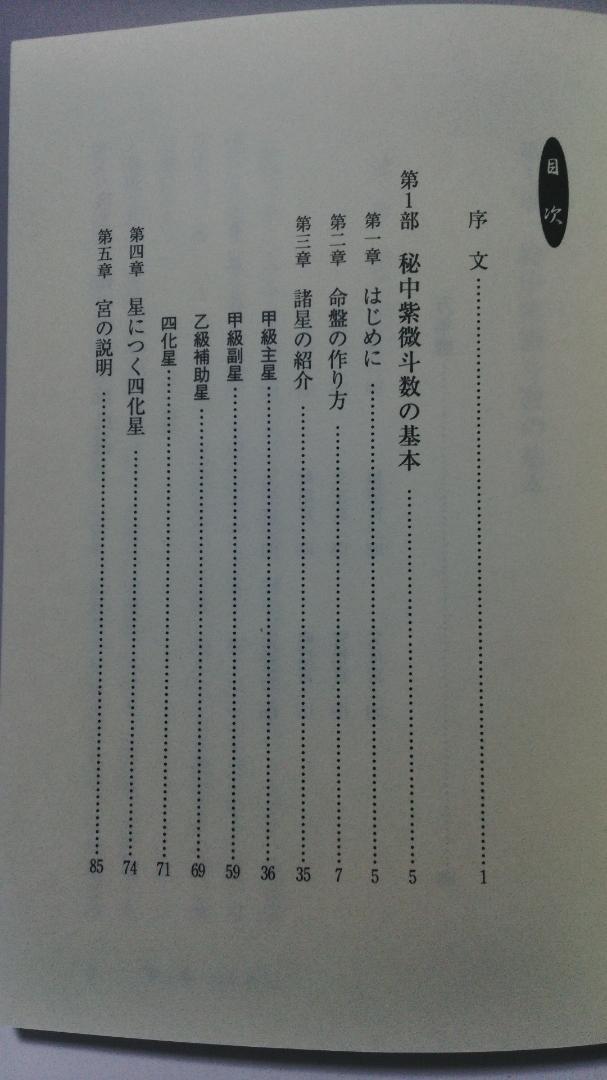 目次
序文……………………………1
第1部 秘中紫微斗数の基本……………………………5
第一章 はじめに……………………………5
第二章 命盤の作り方……………………………7
第三章 諸星の紹介……………………………35
甲級主星……………………………36
甲級副星……………………………59
乙級補助星……………………………69
四化星……………………………71
第四章 星につく四化星……………………………74
第五章 宮の説明……………………………85